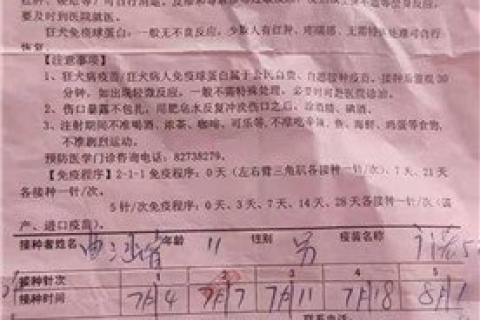 要及时到医院就医。
狂犬免疫球蛋白,一般无不良反应,少数人有红肿、疼痛感,无需特殊处理可自行
恢复。
【注意事项】
1、狂犬病疫苗/狂犬病人免疫球蛋白属于公民自费、自愿接种疫苗。接种后留观30
分钟,如出现轻微反应,一般不需特殊处理,必要时可医院诊治。
2、伤口暴露不包扎,用肥皂水反复冲洗伤口之后,涂酒精、碘酒。
3、注射期间不准喝酒、浓茶、咖啡、可乐等,不准吃辛辣、鱼、海鲜、鸡蛋等食物,
不准剧烈运动。
预防医学门诊咨询电话:82738279。
【免疫程序】2-1-1免疫程序:0天(左右臂三角肌各接种一针/次)、7天、21天
各接种一针/次。
5针/次免疫程序:0天、3天、7天、14天、28天各接种一针/次(国
产、进口疫苗)。
接种者姓名 年龄 11 性别 男 疫苗名称
接种针次 1 2 3 4 5
接种时间 7月4 7月7 7月11 7月18 8月1
联系电话: